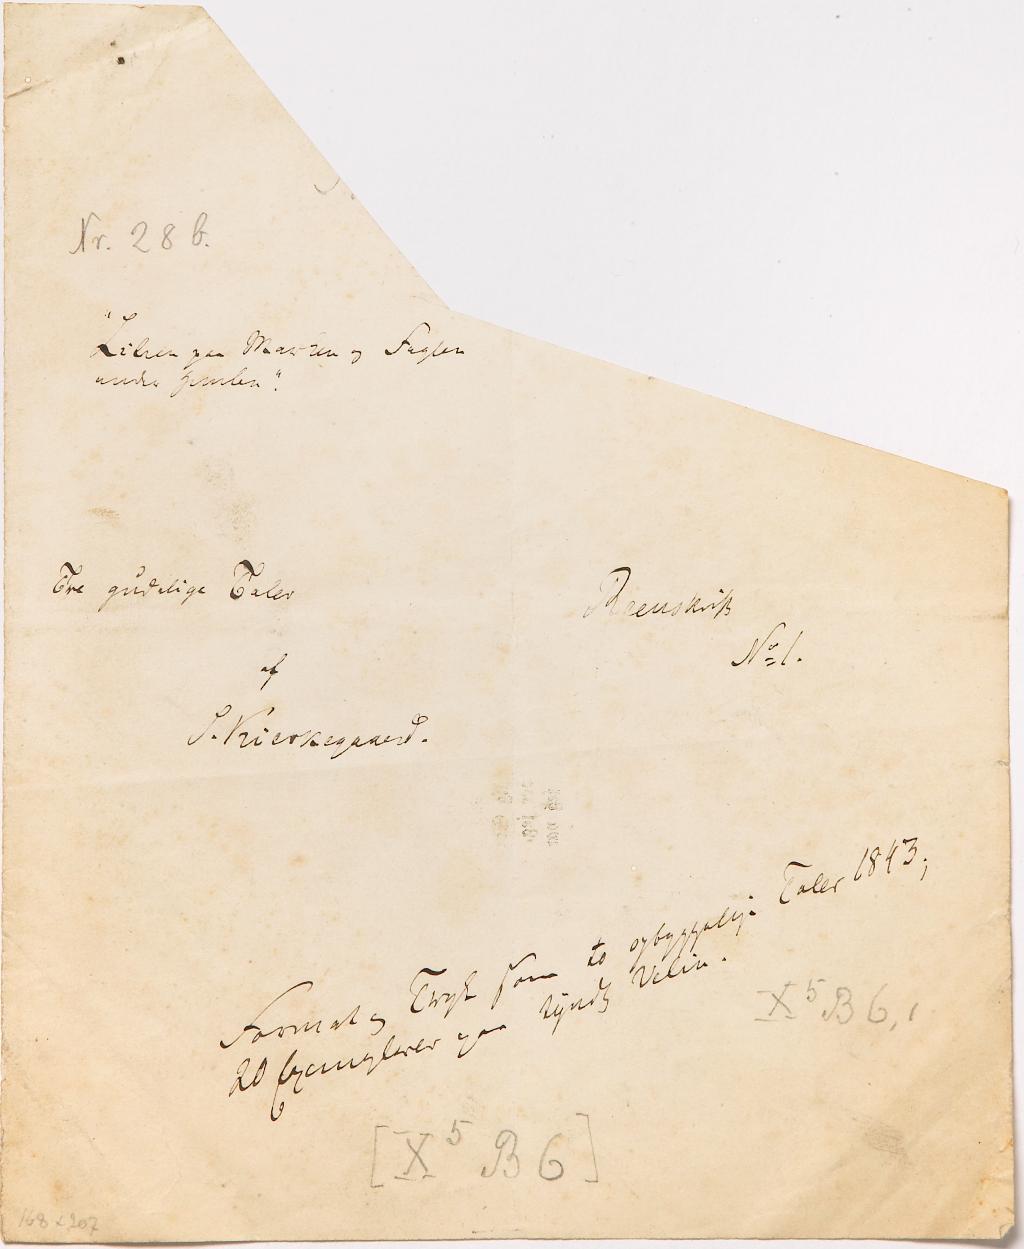 Nr. 28 b.
"Lilien paa Marken og Fuglen
under Himlen".
Tre gudelige Taler
af
S. Kierkegaard.
Reenskrift
No 1.
Format og Tryk som to opbyggelige Taler 1843;
20 Exemplarer paa tyndt Velin.
X⁵ B 6,1
[X⁵ B 6]
168 x 207